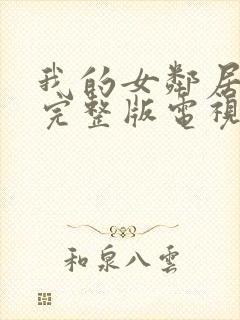 我的女鄰居
完整版電視
和泉八雲